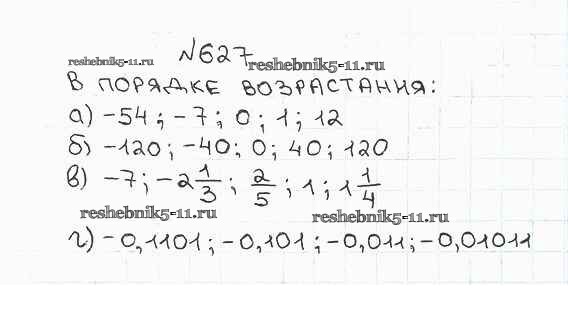 №627
reshebnik5-11.ru reshebnik5-11.ru
В ПОРЯДКЕ ВОЗРАСТАНИЯ:
а) -54; -7; 0; 1; 12
б) -120; -40; 0; 40; 120
в) -7; -2 1/3; 2/5; 1; 1 1/4
reshebnik5-11.ru reshebnik5-11.ru
г) -0,1101; -0,101; -0,011; -0,01011